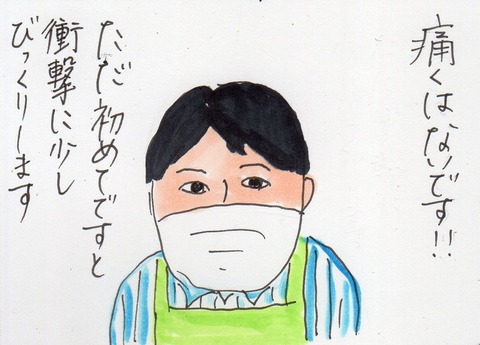 痛くはないです!!
ただ初めてですと
衝撃に少し
びっくりします